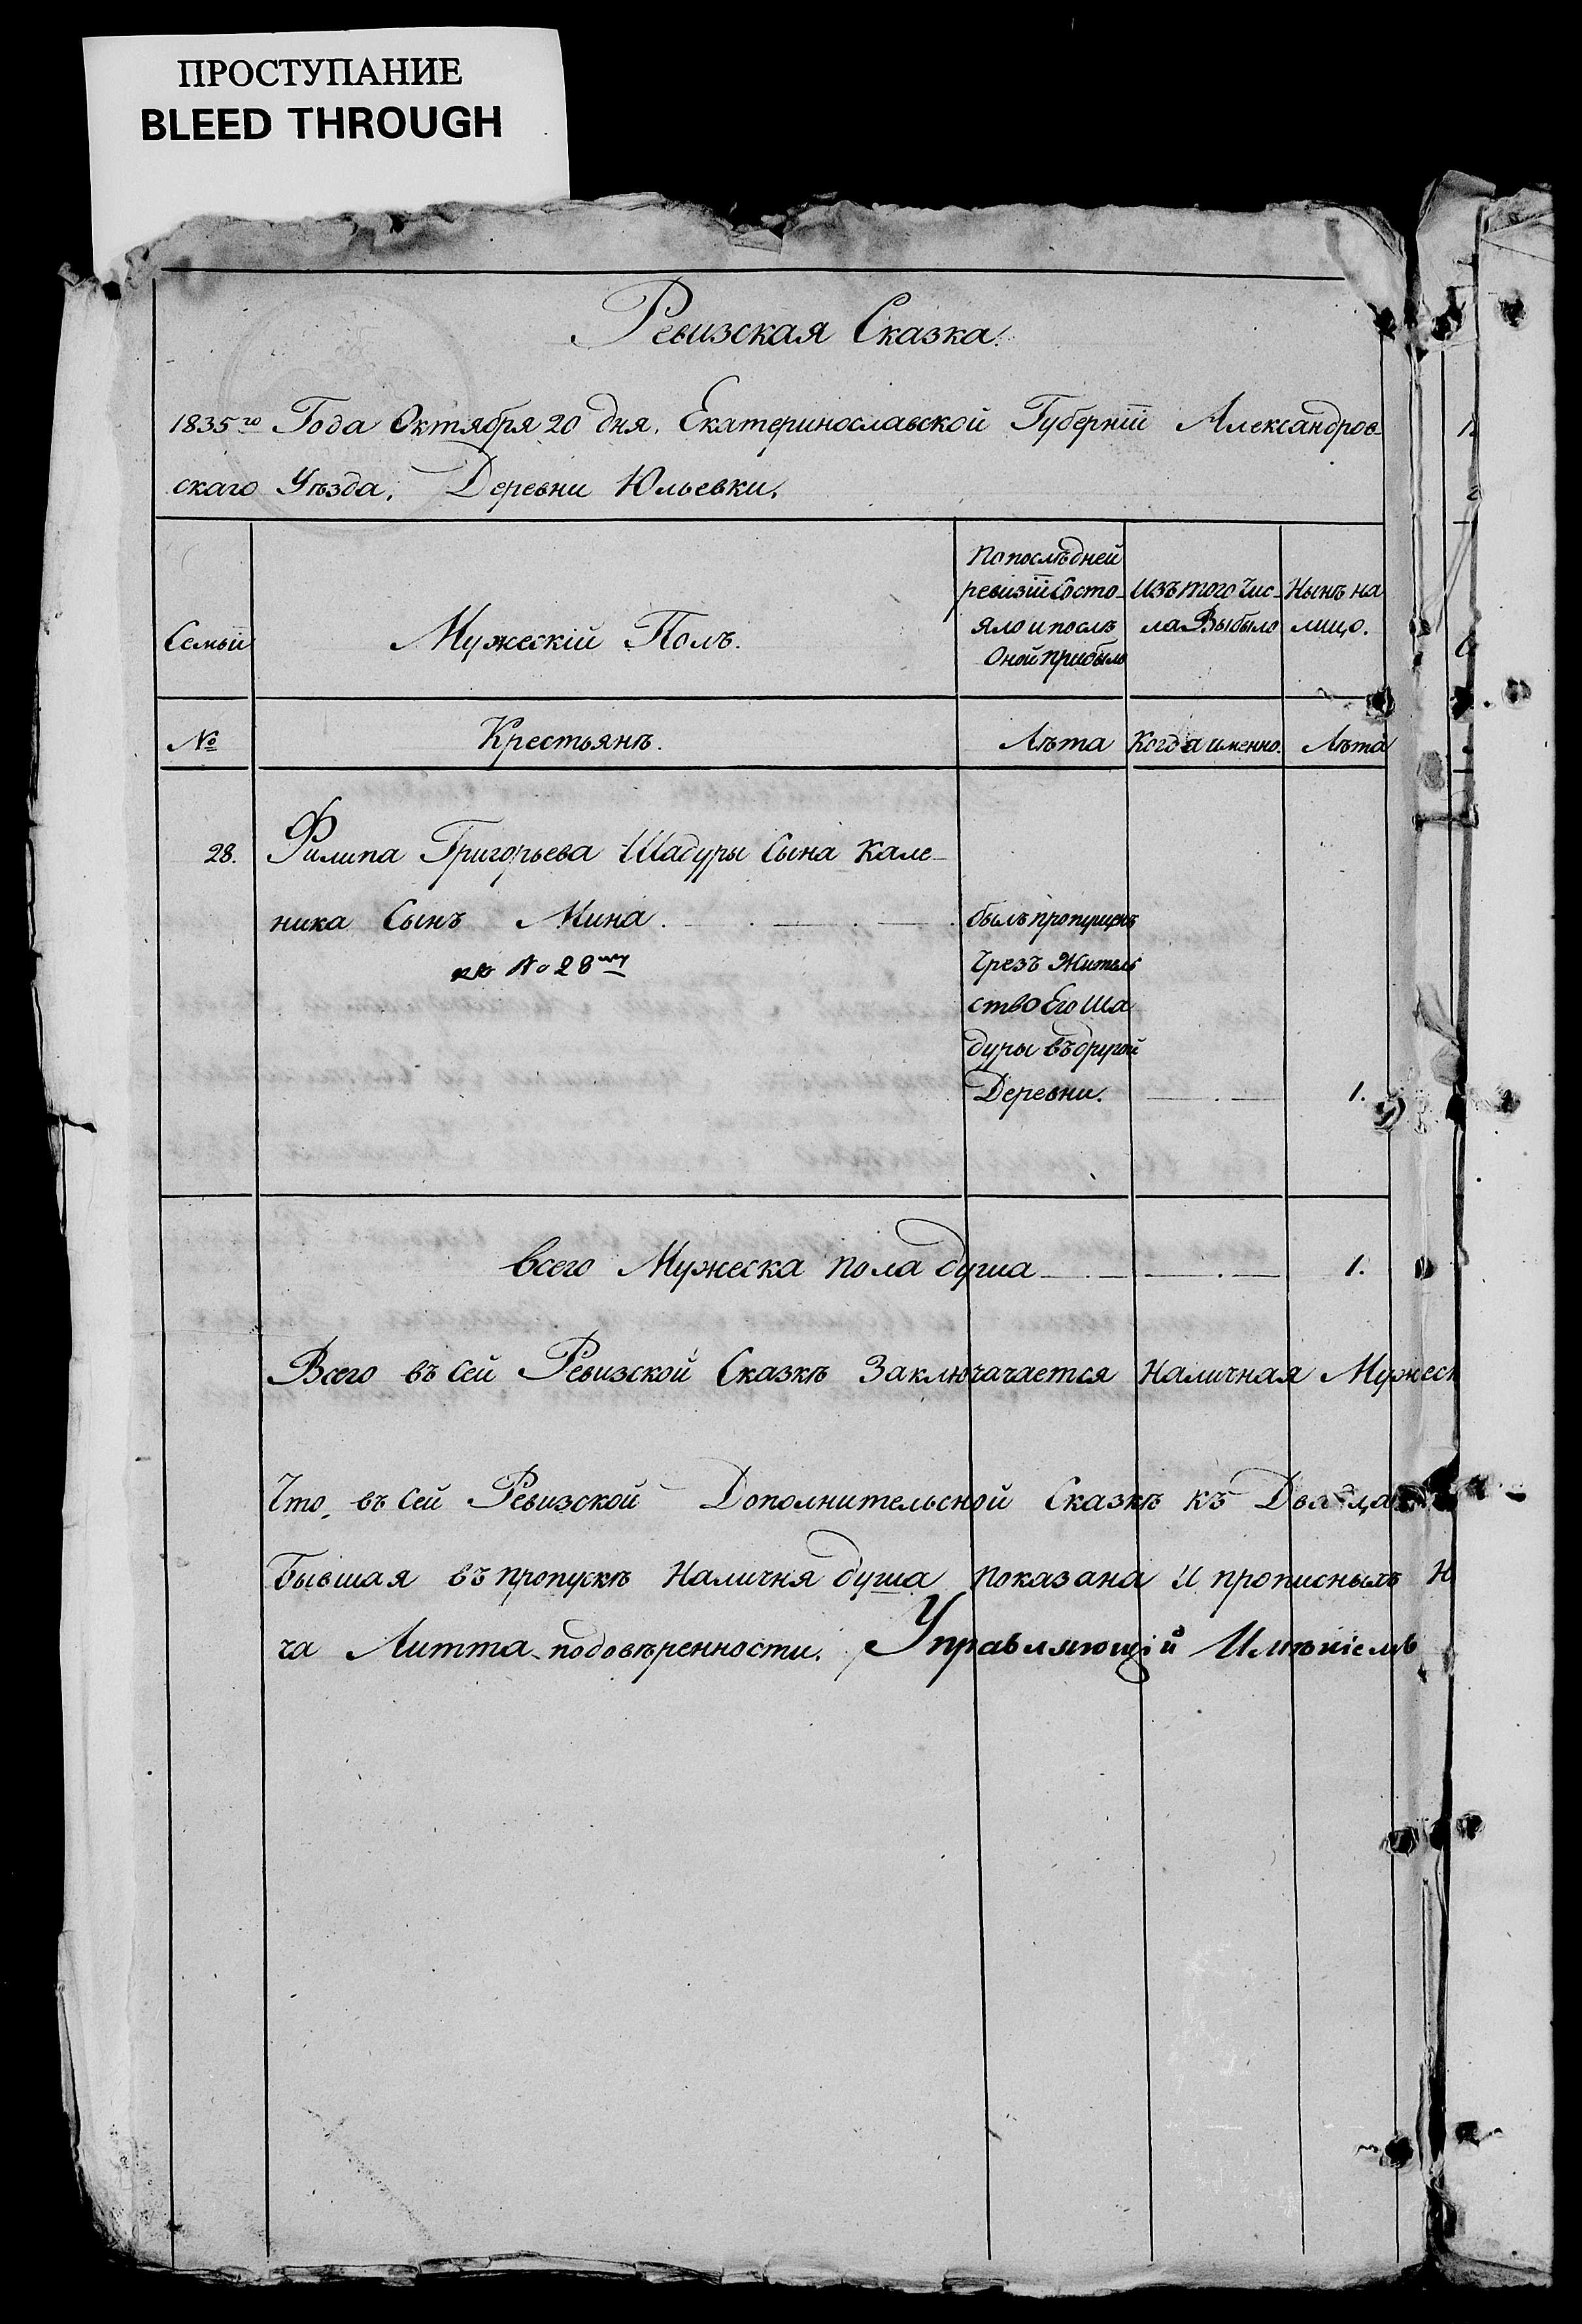 ПРОСТУПАНИЕ
BLEED THROUGH
Ревизская Сказка.
1835го Года Октября 20 дня. Екатеринославской Губернїи Александров-
скаго Уѣзда. Деревни Юльевки.
Семьи
Мужескїй Полъ.
По послѣдней
ревизїи Состо-
яло и послѣ
Оной прибыло
Изъ того Чис-
ла Выбыло
Нынѣ на
лицо.
№
Крестьянъ.
Лѣта
Когда именно.
Лѣта
28.
Филипа Григорьева Шадуры Сына Кале-
ника Сынъ Мина.
къ № 28му
былъ пропущенъ
Чрезъ Житель
ство Его Ша
дуры въ другой
Деревни.
1.
всего Мужеска пола душа
1.
Всего въ Сей Ревизской Сказкѣ Заключачается Наличная Мужеск
Что въ Сей Ревизской Дополнительсной Сказкѣ къ Двадца
Бывшая въ пропускѣ Наличня душа показана и прописныхъ Н
ча Литта по довѣренности. Управляющїй Имѣнїемъ